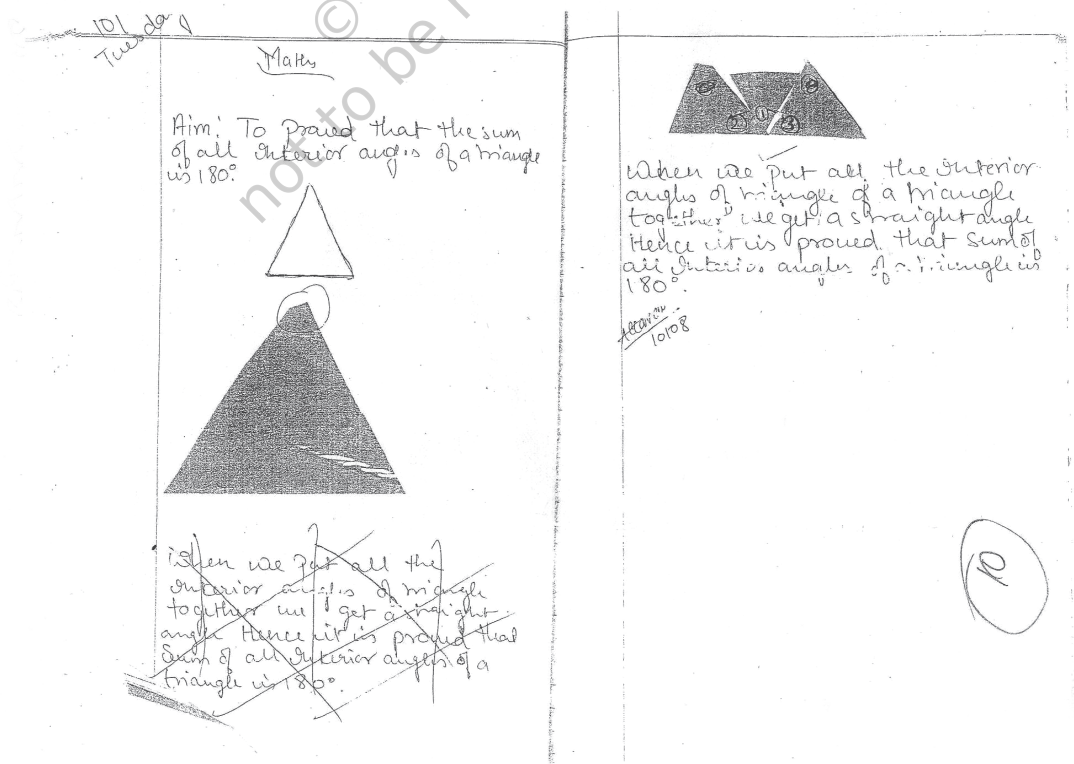 101
Tuesday
©
not to be
Maths
Aim: To proved that the sum
of all interior angles of a triangle
is 180°.
When we put all the
interior angles of triangle
together we get a straight
angle Hence it is proved that
Sum of all interior angles of a
triangle is 180°.
2 1 3
When we put all the interior
angles of triangle of a triangle
together we get a straight angle
Hence it is proved that sum of
all interior angles of a triangle is
180°.
10108
10